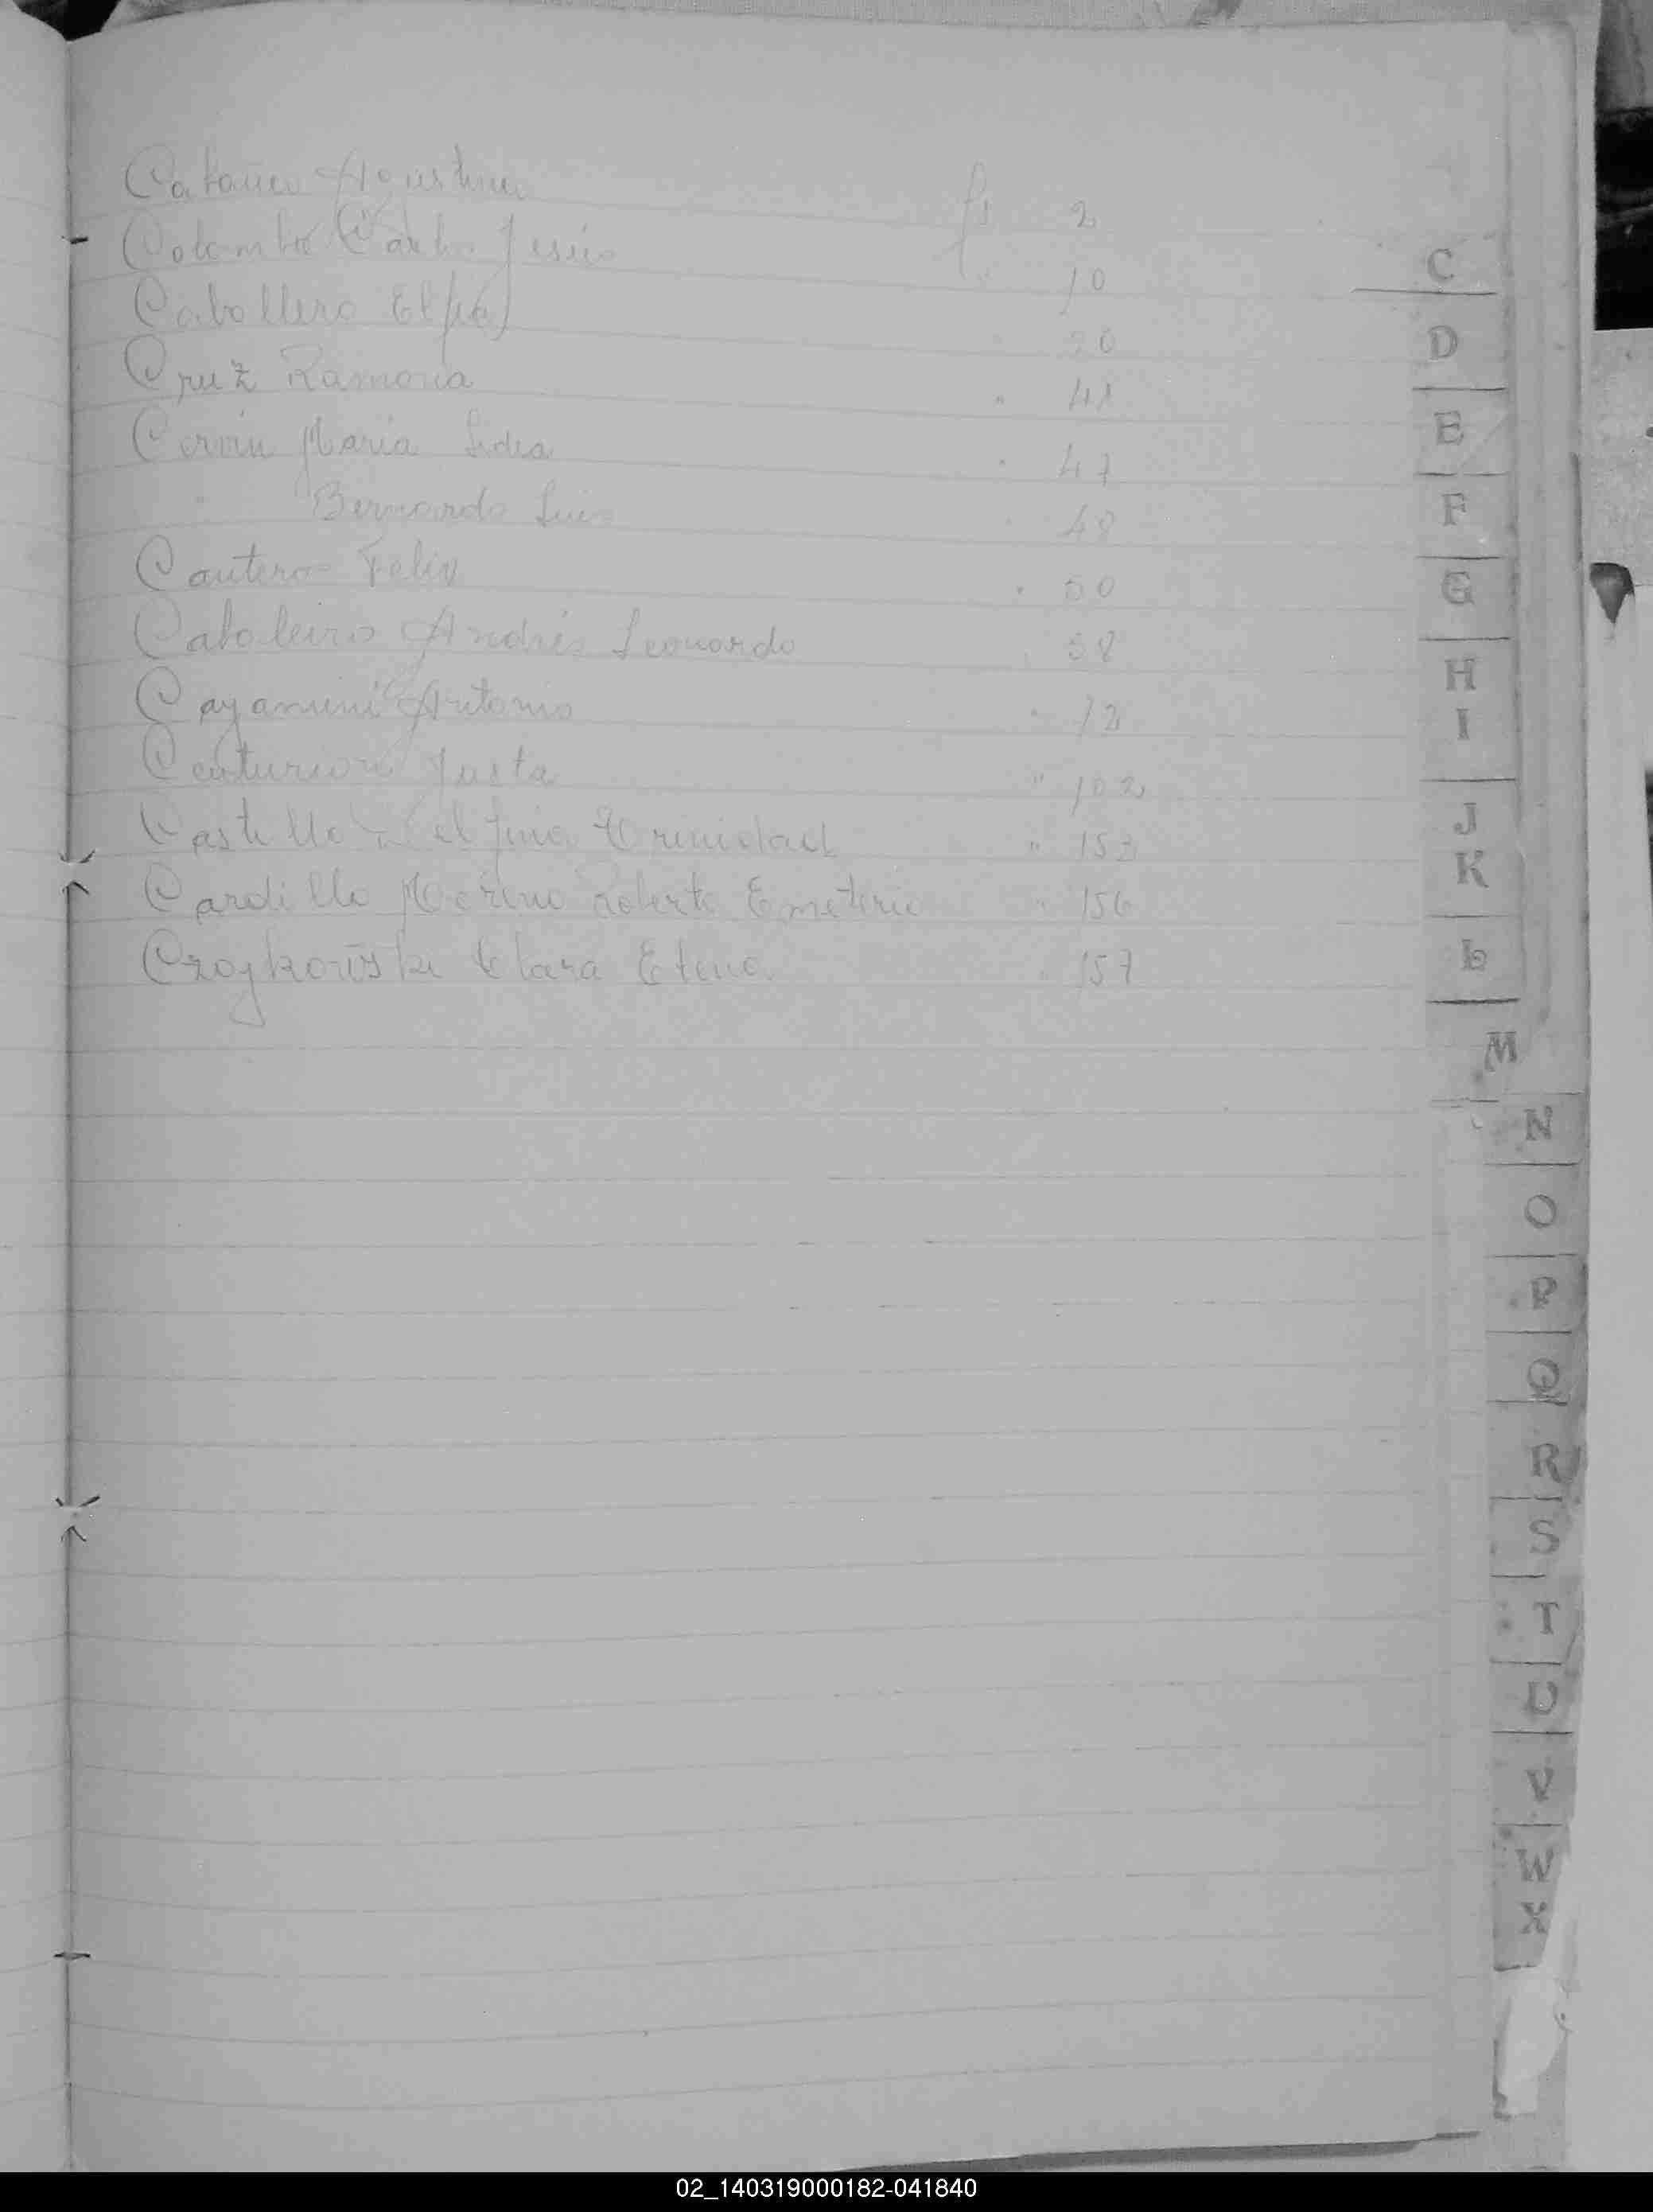 Agustin fs 2
Colombo Carlos Jesús " 10
Caballero 20
Cruz Ramona " 41
Cervin Maria Lidia " 47
" Bernardo Luis " 48
Cantero Felix " 50
Caboleiro Andrés Leonardo " 58
Antonio " 72
Centurion Justa " 102
Castillo Delfina Trinidad " 153
Cardillo Merino Roberto Emeterio " 156
Clara Elena " 157
C
D
E
F
G
H
I
J
K
L
M
N
O
P
Q
R
S
T
U
V
W
X
02_140319000182-041840